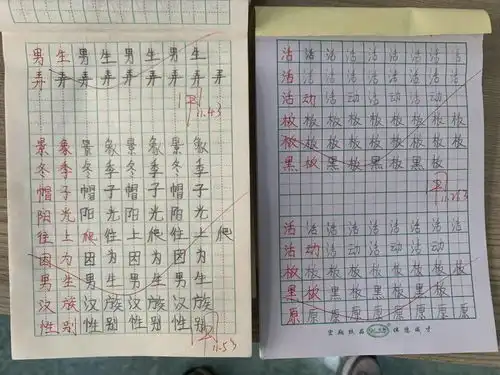 男生男生男生男生
弄弄弄弄弄弄弄弄
景象景象景象景象
冬季冬季冬季冬季
帽子帽子帽子帽子
阳光阳光阳光阳光
往上爬往上爬往上爬
因为因为因为因为
男生男生男生男生
汉族汉族汉族汉族
性别性别性别性别
活活活活活活活活
活活活活活活活活
活动活动活动活动
板板板板板板板板
板板板板板板板板
黑板黑板黑板黑板
活活活活活活活活
活动活动活动活动
板板板板板板板板
黑板黑板黑板黑板
原原原原原原原原